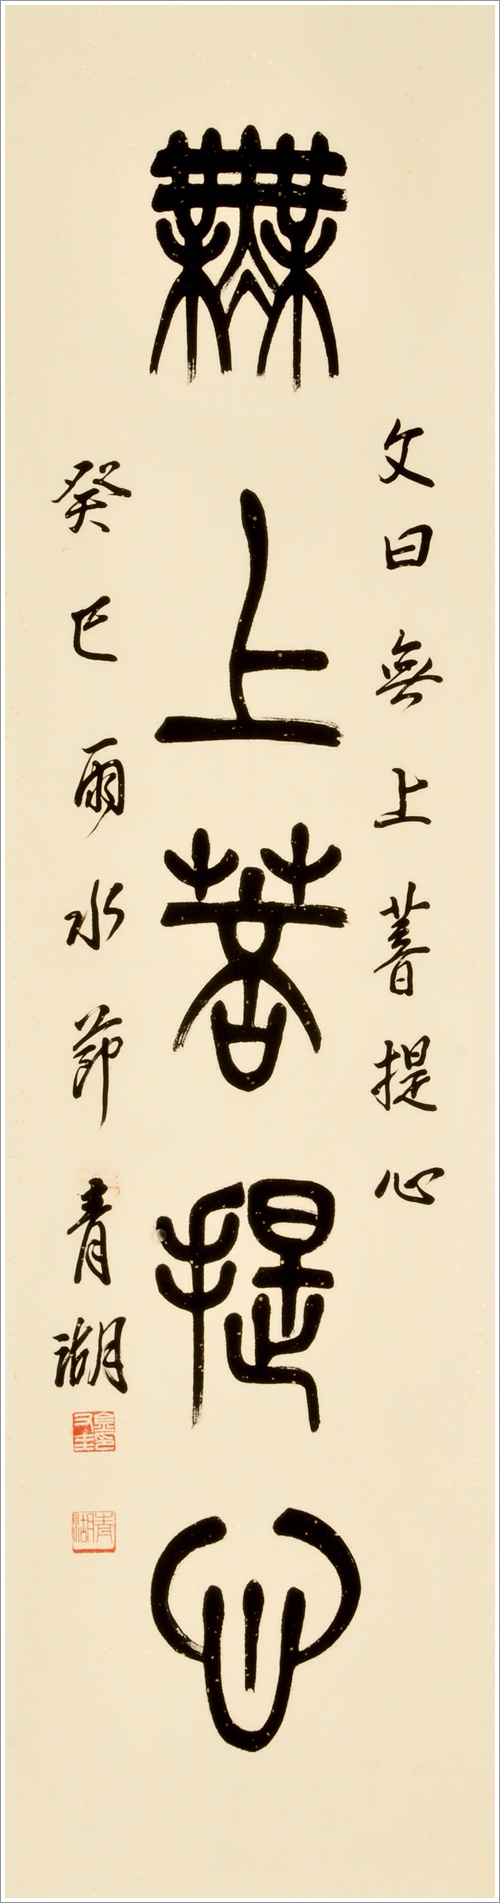 文曰無上菩提心
無上菩提心
癸巳雨水節青湖
青湖